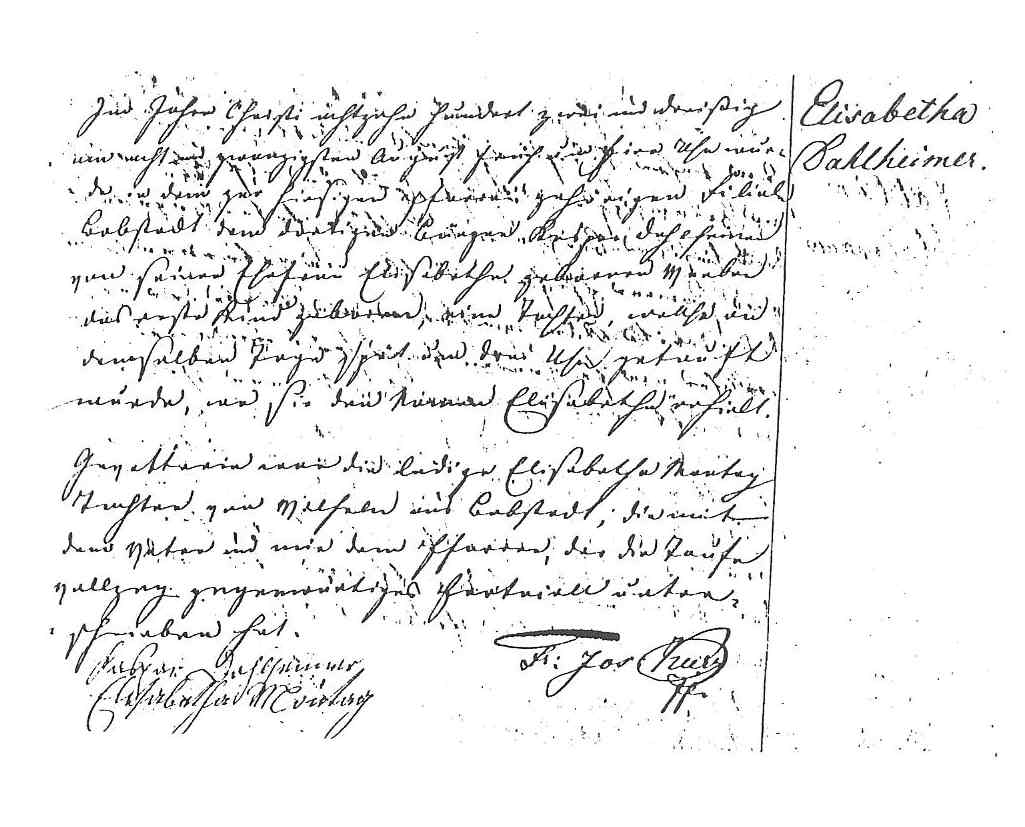 Im Jahre Christi achtzehn hundert zwei und dreißig
am acht und zwanzigsten August früh um Uhr wur-
de in dem zur hiesigen Pfarrei gehörigen Filial
Bobstadt dem dortigen Bürger Kaspar Dahlheimer
von seiner Ehefrau Elisabetha geborenen
das erste Kind geboren, eine Tochter, welche an
demselben Tage spät um drei Uhr getauft
wurde, wo sie den Namen Elisabetha erhielt.
Gevatterin war die ledige Elisabetha Montag
Tochter von aus Bobstadt, die mit
dem Vater und mir dem Pfarrer, der die Taufe
vollzog gegenwärtiges Protocoll unter-
schrieben hat.
Kaspar Dahlheimer
Elisabetha Montag
Fr: Jos
Elisabetha
Dahlheimer.